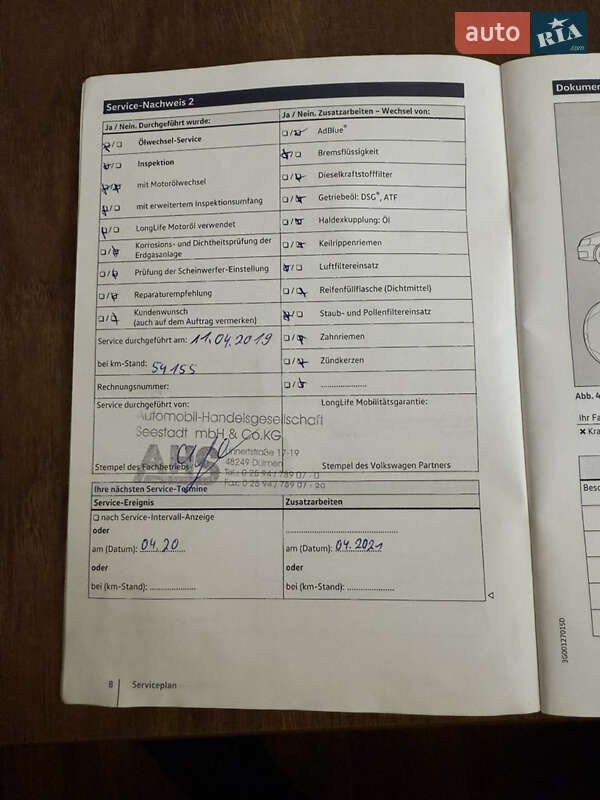 auto RIA .com
Service-Nachweis 2
Ja / Nein. Durchgeführt wurde:
Ölwechsel-Service
Inspektion
mit Motorölwechsel
mit erweitertem Inspektionsumfang
LongLife Motoröl verwendet
Korrosions- und Dichtheitsprüfung der
Erdgasanlage
Prüfung der Scheinwerfer-Einstellung
Reparaturempfehlung
Kundenwunsch
(auch auf dem Auftrag vermerken)
Service durchgeführt am: 11.04.2019
bei km-Stand: 54155
Rechnungsnummer:
Service durchgeführt von:
Automobil-Handelsgesellschaft
Seestadt mbH & Co.KG
AHS
48249 Dülmen
Tel.: 0 25 94 / 789 07 - 0
Fax: 0 25 94 / 789 07 - 20
Stempel des Fachbetriebs
Ja / Nein. Zusatzarbeiten – Wechsel von:
AdBlue®
Bremsflüssigkeit
Dieselkraftstofffilter
Getriebeöl: DSG®, ATF
Haldexkupplung: Öl
Keilrippenriemen
Luftfiltereinsatz
Reifenfüllflasche (Dichtmittel)
Staub- und Pollenfiltereinsatz
Zahnriemen
Zündkerzen
LongLife Mobilitätsgarantie:
Stempel des Volkswagen Partners
Ihre nächsten Service-Termine
Service-Ereignis
nach Service-Intervall-Anzeige
oder
am (Datum): 04.20
oder
bei (km-Stand):
Zusatzarbeiten
am (Datum): 04.2021
oder
bei (km-Stand):
8 Serviceplan
Dokumen
Abb. 4
Ihr Fa
✕ Kra
Besc
3G0012701SD